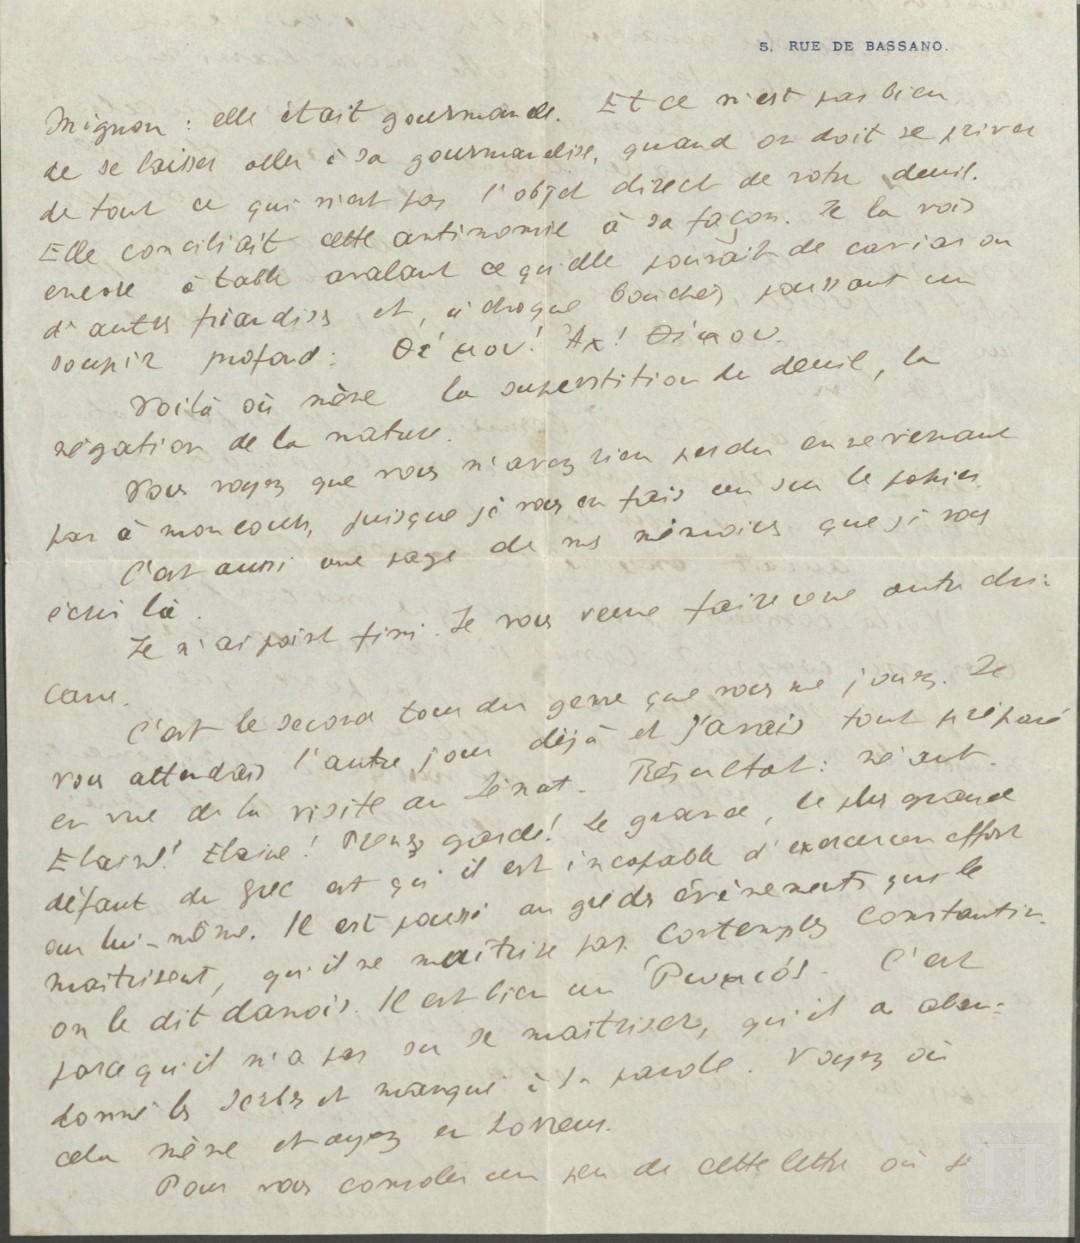 5, RUE DE BASSANO.
Mignon : elle était gourmande. Et ce n'est pas bien
de se laisser aller à sa gourmandise, quand on doit se priver
de tout ce qui n'est pas l'objet direct de votre deuil.
Elle conciliait cette antinomie à sa façon. Je la vois
encore à table avalant ce qu'elle pouvait de caviar ou
d'autres friandises et, à chaque bouchée, poussant un
soupir profond : Θέ μου! Ἄχ! Θέ μου.
Voilà où mène la superstition du deuil, la
négation de la nature.
Vous voyez que vous n'avez rien perdu en ne venant
pas à mon cours, puisque je vous en fais un sur le papier.
C'est aussi une page de mes mémoires que je vous
écris là.
Je n'ai point fini. Je vous veux faire une autre chi-
cane.
C'est le second tour du genre que vous me jouez. Je
vous attendais l'autre jour déjà et j'avais tout préparé
en vue de la visite au Sénat. Résultat : néant.
Elaine! Elaine! Prenez garde! Le grand, le plus grand
défaut du grec est qu'il est incapable d'exercer un effort
sur lui-même. Il est poussé au gré des évènements qui le
maîtrisent, qu'il ne maîtrise pas. Contemplez Constantin.
on le dit danois. Il est bien un Ῥωμιός. C'est
parce qu'il n'a pas su se maîtriser, qu'il a aban-
donné les Serbes et manqué à sa parole. Voyez où
cela mène et ayez en horreur.
Pour vous consoler un peu de cette lettre où je